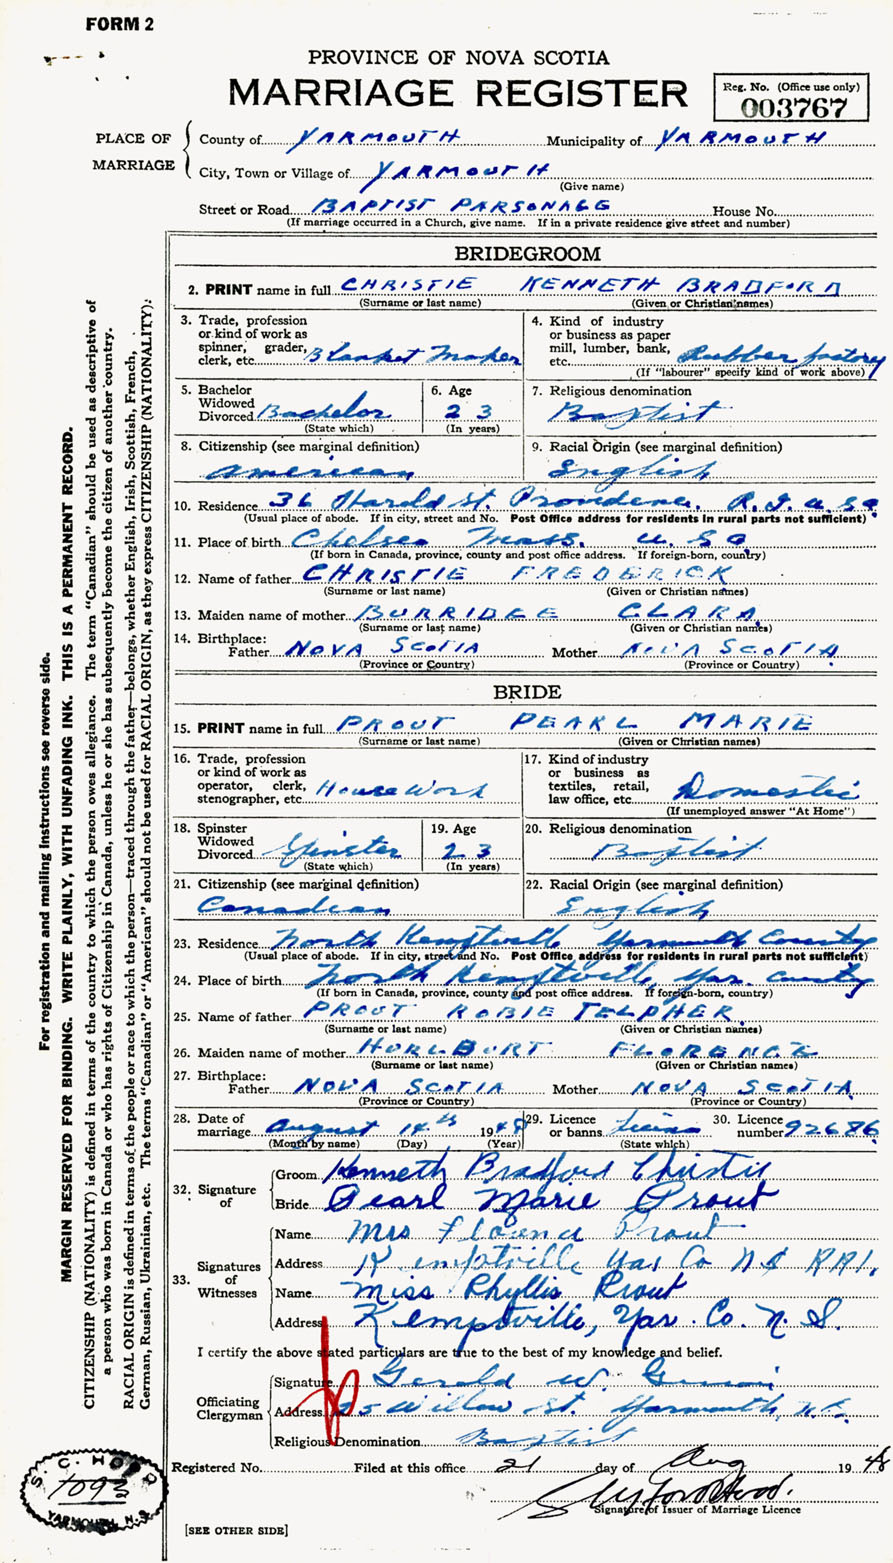 FORM 2
PROVINCE OF NOVA SCOTIA
MARRIAGE REGISTER
Reg. No. (Office use only)
003767
PLACE OF MARRIAGE
County of YARMOUTH Municipality of YARMOUTH
City, Town or Village of YARMOUTH
(Give name)
Street or Road BAPTIST PARSONAGE House No.
(If marriage occurred in a Church, give name. If in a private residence give street and number)
BRIDEGROOM
2. PRINT name in full CHRISTIE KENNETH BRADFORD
(Surname or last name) (Given or Christian names)
3. Trade, profession or kind of work as spinner, grader, clerk, etc. Blanket Maker
4. Kind of industry or business as paper mill, lumber, bank, etc. Rubber factory
(If "labourer" specify kind of work above)
5. Bachelor Widowed Divorced Bachelor
(State which)
6. Age 23
(In years)
7. Religious denomination
Baptist
8. Citizenship (see marginal definition)
American
9. Racial Origin (see marginal definition)
English
10. Residence 36 Harold St. Providence, R.I. USA
(Usual place of abode. If in city, street and No. Post Office address for residents in rural parts not sufficient)
11. Place of birth Chelsea Mass. USA
(If born in Canada, province, county and post office address. If foreign-born, country)
12. Name of father CHRISTIE FREDERICK
(Surname or last name) (Given or Christian names)
13. Maiden name of mother BURRIDGE CLARA
(Surname or last name) (Given or Christian names)
14. Birthplace:
Father NOVA SCOTIA Mother NOVA SCOTIA
(Province or Country) (Province or Country)
BRIDE
15. PRINT name in full PROUT PEARL MARIE
(Surname or last name) (Given or Christian names)
16. Trade, profession or kind of work as operator, clerk, stenographer, etc. House Work
17. Kind of industry or business as textiles, retail, law office, etc. Domestic
(If unemployed answer "At Home")
18. Spinster Widowed Divorced Spinster
(State which)
19. Age 23
(In years)
20. Religious denomination
Baptist
21. Citizenship (see marginal definition)
Canadian
22. Racial Origin (see marginal definition)
English
23. Residence North Kemptville Yarmouth County
(Usual place of abode. If in city, street and No. Post Office address for residents in rural parts not sufficient)
24. Place of birth North Kemptville, Yar. County
(If born in Canada, province, county and post office address. If foreign-born, country)
25. Name of father PROUT ROBIE TELPHER
(Surname or last name) (Given or Christian names)
26. Maiden name of mother HURLBURT FLORENCE
(Surname or last name) (Given or Christian names)
27. Birthplace:
Father NOVA SCOTIA Mother NOVA SCOTIA
(Province or Country) (Province or Country)
28. Date of marriage August 14th 1948
(Month by name) (Day) (Year)
29. Licence or banns License
(State which)
30. Licence number 92686
32. Signature of
Groom Kenneth Bradford Christie
Bride Pearl Marie Prout
33. Signatures of Witnesses
Name Mrs Florence Prout
Address Kemptville Yar Co N S RR1.
Name Miss Phyllis Prout
Address Kemptville, Yar. Co. N. S.
I certify the above stated particulars are true to the best of my knowledge and belief.
Officiating Clergyman
Signature Gerald W.
Address 25 Willow St. Yarmouth, N.S.
Religious Denomination Baptist
Registered No. Filed at this office 21 day of Aug 1948
Signature of Issuer of Marriage Licence
[SEE OTHER SIDE]
S. C. HOOD
1093
YARMOUTH, N.S.
For registration and mailing instructions see reverse side.
MARGIN RESERVED FOR BINDING. WRITE PLAINLY, WITH UNFADING INK. THIS IS A PERMANENT RECORD.
CITIZENSHIP (NATIONALITY) is defined in terms of the country to which the person owes allegiance. The term "Canadian" should be used as descriptive of
a person who was born in Canada or who has rights of Citizenship in Canada, unless he or she has subsequently become the citizen of another country.
RACIAL ORIGIN is defined in terms of the people or race to which the person—traced through the father—belongs, whether English, Irish, Scottish, French,
German, Russian, Ukrainian, etc. The terms "Canadian" or "American" should not be used for RACIAL ORIGIN, as they express CITIZENSHIP (NATIONALITY).